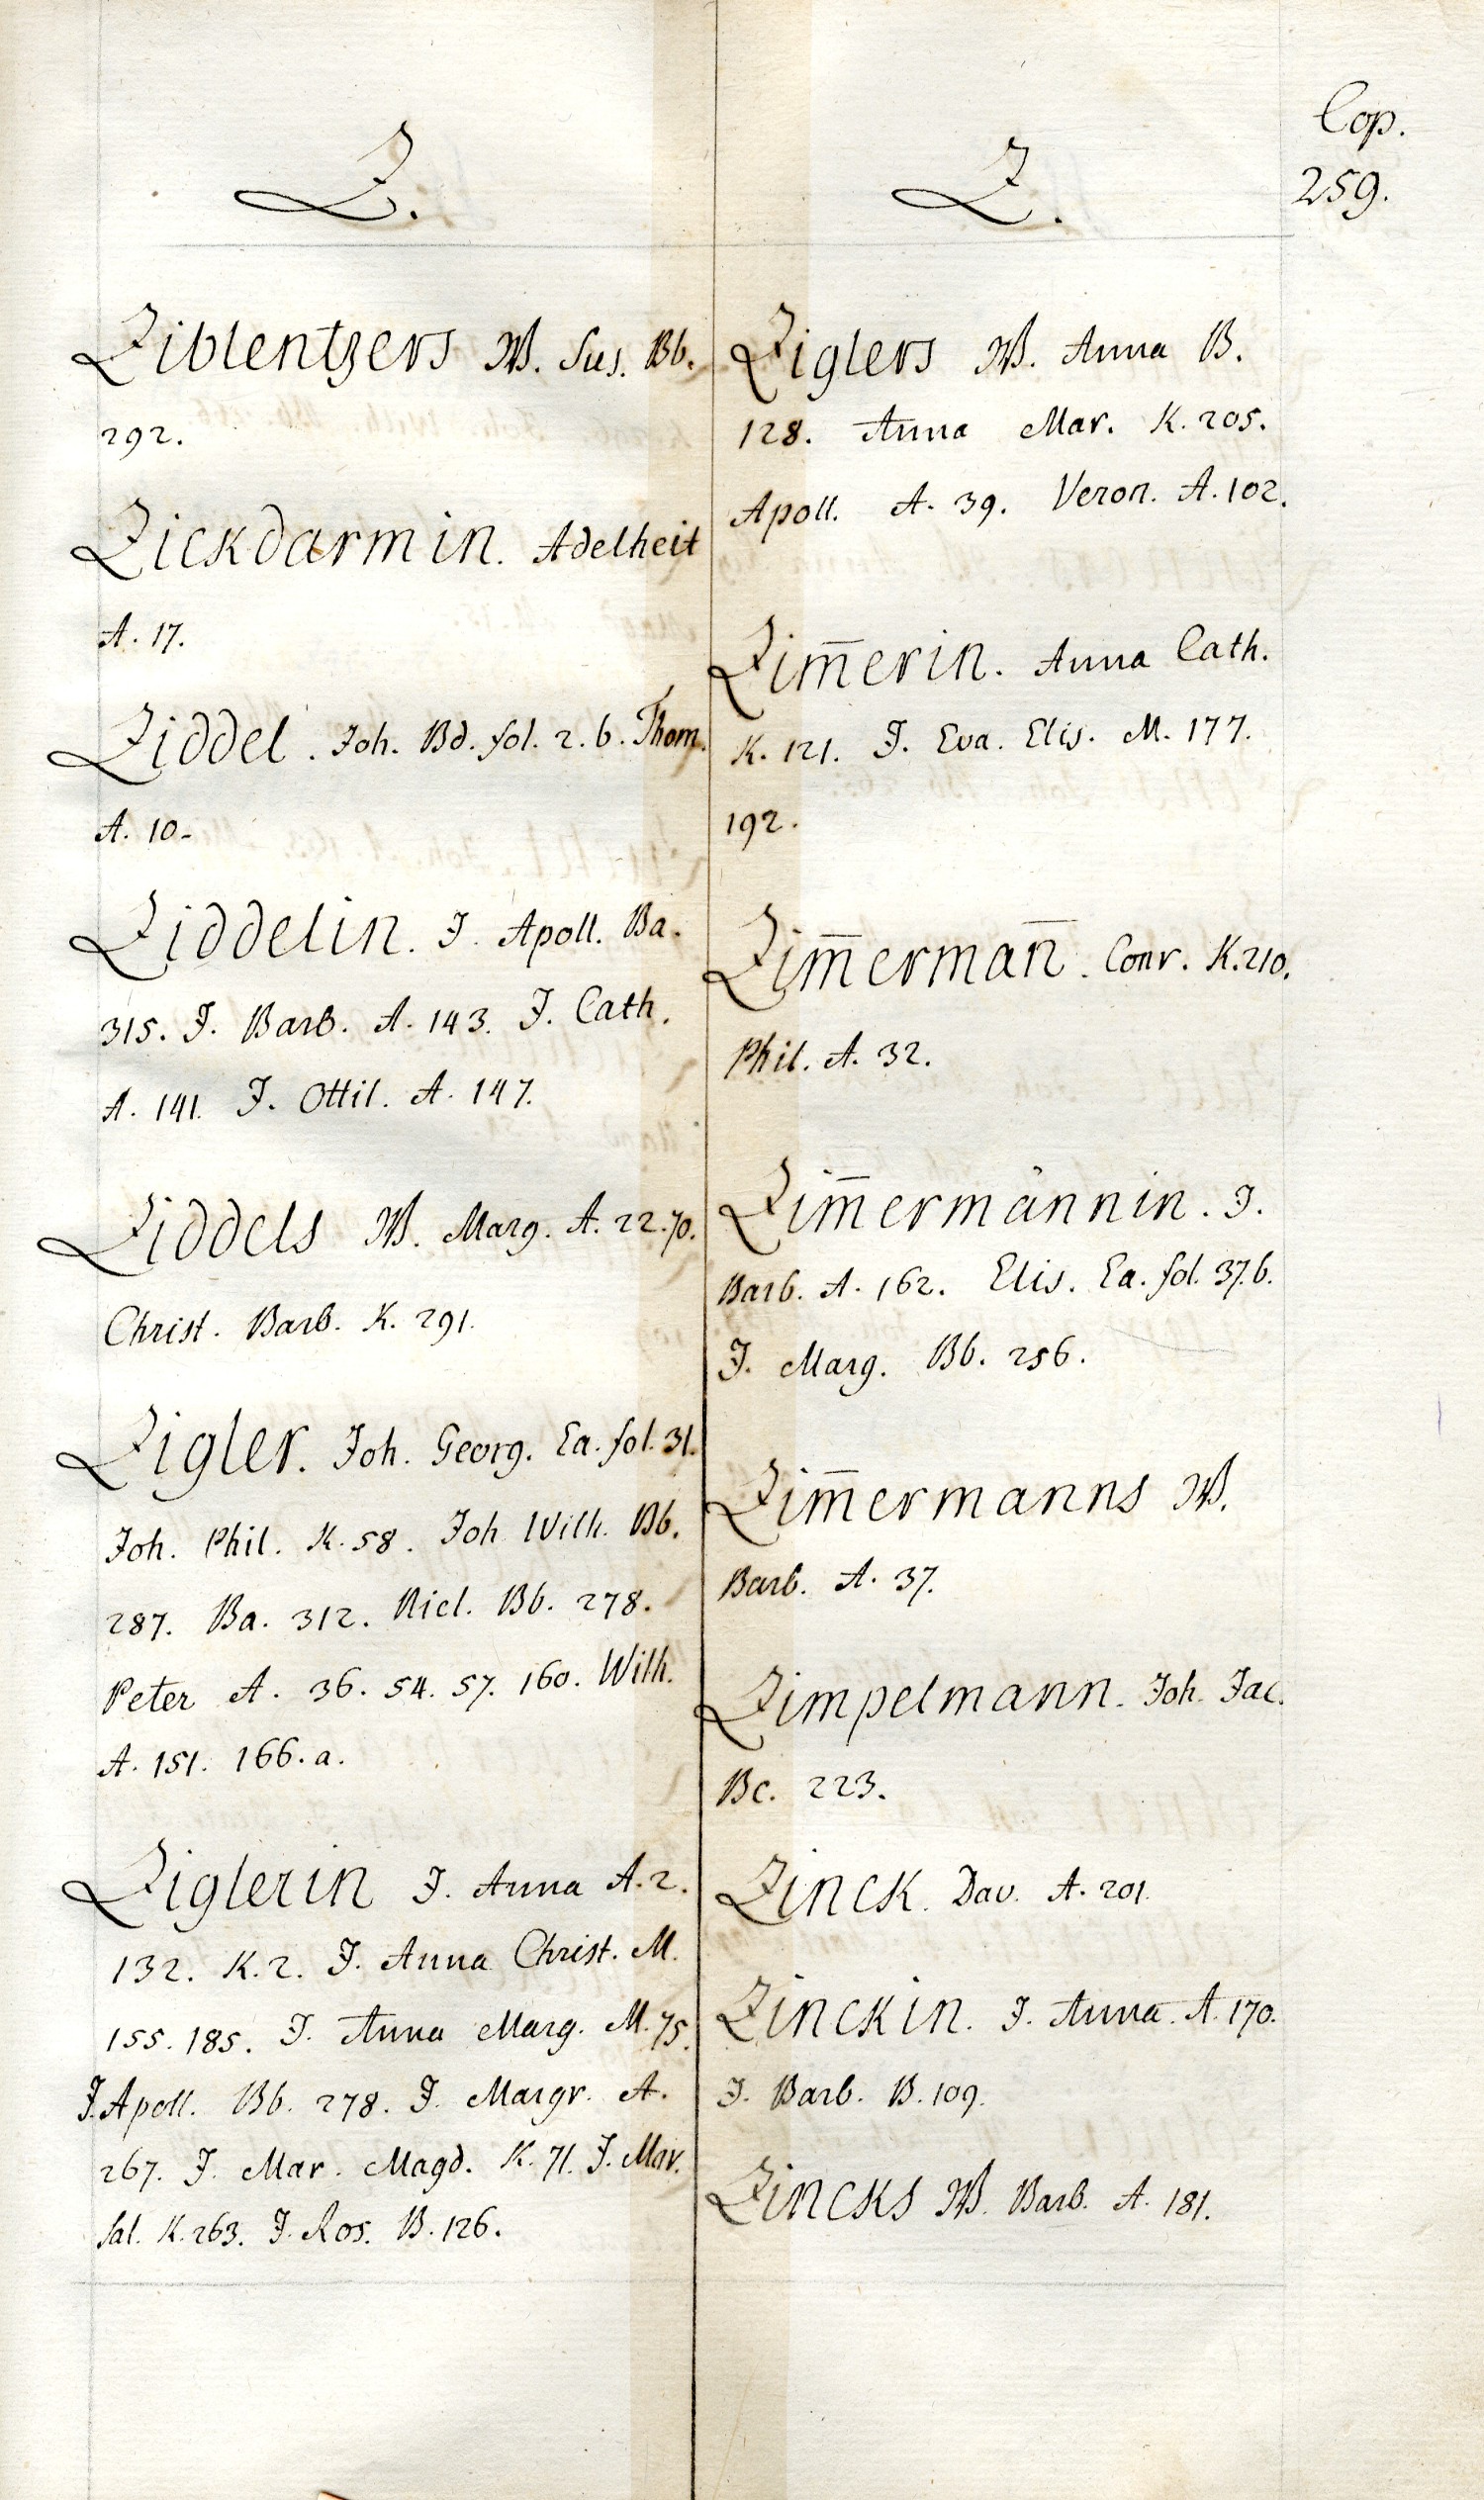 Cop.
259.
Z.
Ziblentzers W. Sus. Bb.
292.
Zickdarmin. Adelheit
A. 17.
Ziddel. Joh. Bd. fol. 2. b. Thom.
A. 10.
Ziddelin. J. Apoll. Ba.
315. J. Barb. A. 143. J. Cath.
A. 141. J. Ottil. A. 147.
Ziddels W. Marg. A. 22. 70.
Christ. Barb. K. 291.
Zigler. Joh. Georg. Ea. fol. 31.
Joh. Phil. K. 58. Joh. Wilh. Bb.
287. Ba. 312. Nicl. Bb. 278.
Peter A. 36. 54. 57. 160. Wilh.
A. 151. 166. a.
Ziglerin J. Anna A. 2.
132. K. 2. J. Anna Christ. M.
155. 185. J. Anna Marg. M. 75.
J. Apoll. Bb. 278. J. Margr. A.
267. J. Mar. Magd. K. 71. J. Mar.
Sal. K. 263. J. Ros. B. 126.
Z.
Ziglers W. Anna B.
128. Anna Mar. K. 205.
Apoll. A. 39. Veron. A. 102.
Zim̄erin. Anna Cath.
K. 121. J. Eva. Elis. M. 177.
192.
Zim̄erman̄. Conr. K. 210.
Phil. A. 32.
Zim̄ermännin. J.
Barb. A. 162. Elis. Ea. fol. 37. b.
J. Marg. Bb. 256.
Zim̄ermanns W.
Barb. A. 37.
Zimpelmann. Joh. Jac.
Bc. 223.
Zinck. Dav. A. 201.
Zinckin. J. Anna. A. 170.
J. Barb. B. 109.
Zincks W. Barb. A. 181.